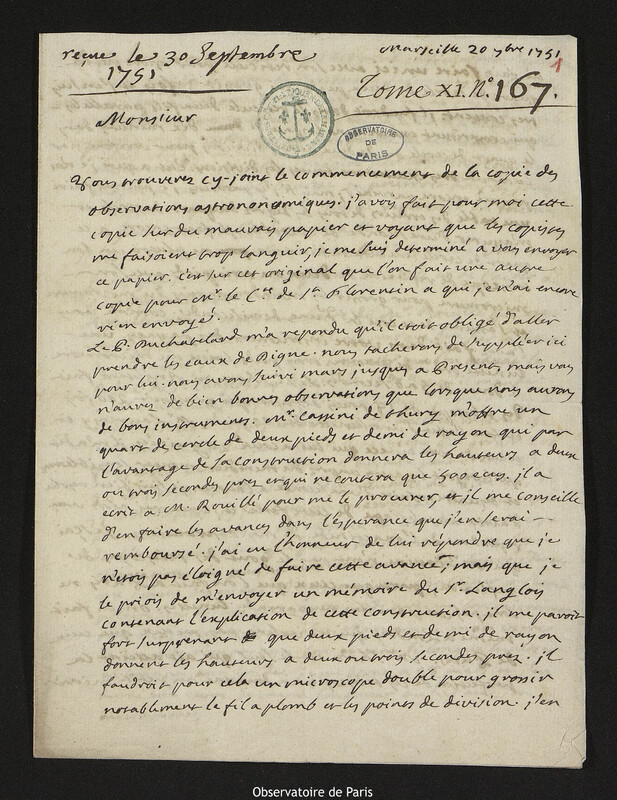 reçue le 30 Septembre
1751
Marseille 20 7bre 1751
1
Tome XI. N.º 167.
Monsieur
OBSERVATOIRE
DE
PARIS
Vous trouverez cy-joint le commencement de la copie des
observations astrononomiques. j'avois fait pour moi cette
copie sur du mauvais papier et voyant que les copistes
me faisoient trop languir, je me suis determiné a vous envoyer
ce papier. c'est sur cet original que l'on fait une autre
copie pour Mr. le Cte de St. Florentin a qui je n'ai encore
rien envoyé.
Le P. m'a repondu qu'il etoit obligé d'aller
prendre les eaux de Digne. nous tacherons de suppléer ici
pour lui. nous avons suivi mars jusques a present, mais vous
n'aures de bien bonnes observations que lorsque nous aurons
de bons instruments. Mr. Cassini de thury m'offre un
quart de cercle de deux pieds et demi de rayon qui par
l'avantage de sa construction donnera les hauteurs a deux
ou trois secondes prez et qui ne coutera que 500 ecus. il a
ecrit a M. Rouillé pour me le procurer, et il me conseille
d'en faire les avances dans l'esperance que j'en serai
remboursé. j'ai eu l'honneur de lui répondre que je
n'etois pas éloigné de faire cette avance, mais que je
le priois de m'envoyer un mémoire du Sr. Langlois
contenant l'explication de cette construction. il me paroit
fort surprenant que deux pieds et demi de rayon
donnent les hauteurs a deux ou trois secondes prez. il
faudroit pour cela un microscope double pour grossir
notablement le fil a plomb et les points de division. j'en
Observatoire de Paris